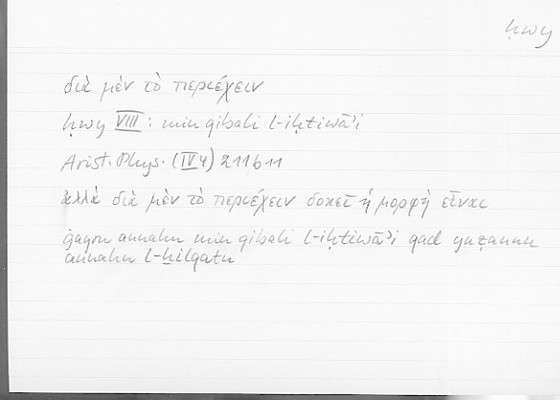 ḥwy
διὰ μὲν τὸ περιέχειν
ḥwy VIII: min qibali l-iḥtiwāʾi
Arist. Phys. (IV 4) 211b11
ἀλλὰ διὰ μὲν τὸ περιέχειν δοκεῖ ἡ μορφὴ εἶναι
ġayra annahu min qibali l-iḥtiwāʾi qad yuẓannu
annahu l-ḫilqatu